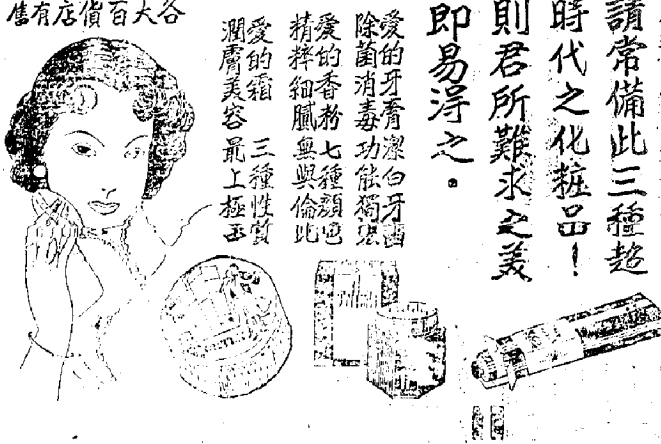 請常備此三種超
時代之化粧品！
則君所難求之美
即易淂之。
愛的牙膏潔白牙齒
除菌消毒功能獨強
愛的香粉七種顏色
精粹細膩無與倫比
愛的霜 三種性質
潤膚美容 最上極品
各大百貨店有售